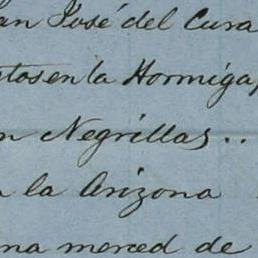 an José del Cura
tos en la Hormiga,
n Negrillas..
a la Arizona
na merced de